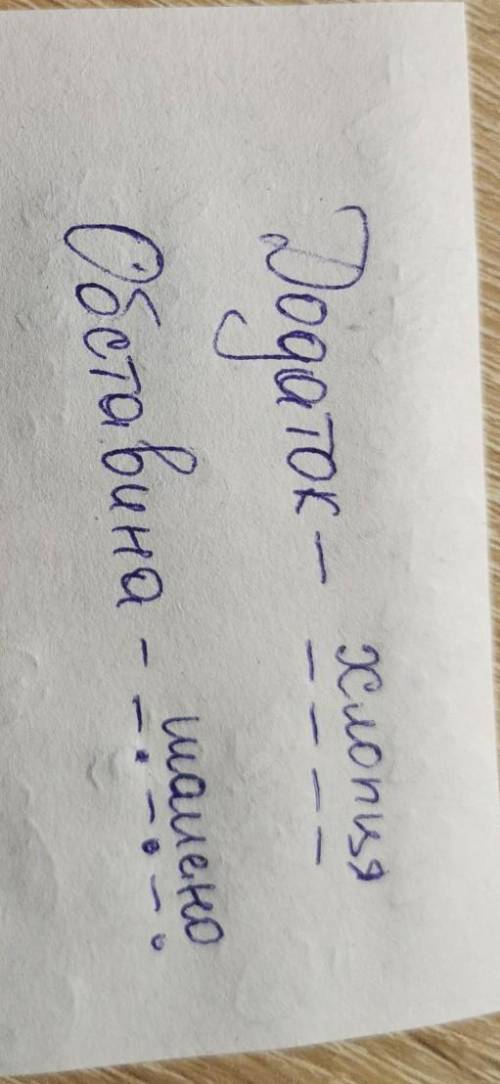 Додаток - хлопця
Обставина - шалено